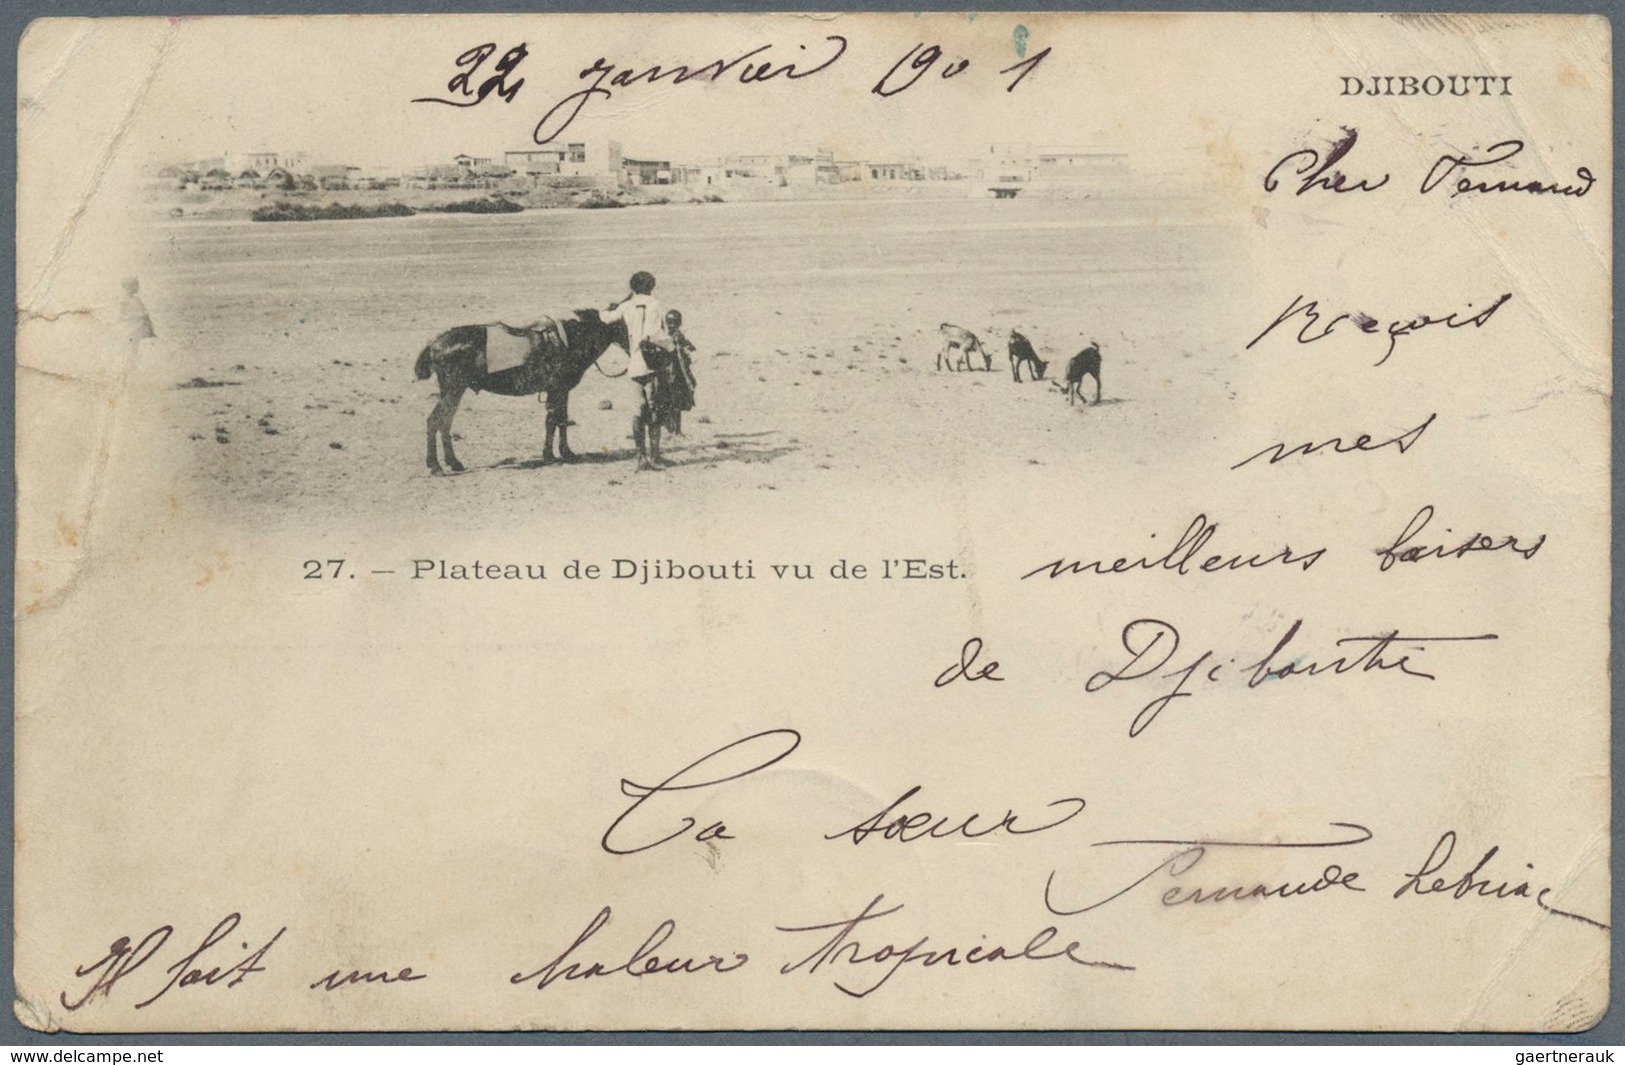 22 janvier 1901
DJIBOUTI
Cher Fernand
Reçois
mes
27. — Plateau de Djibouti vu de l'Est.
meilleurs baisers
de Djibouthi
Ta sœur
Fernande
Il fait une chaleur tropicale
www.delcampe.net
gaertnerauk